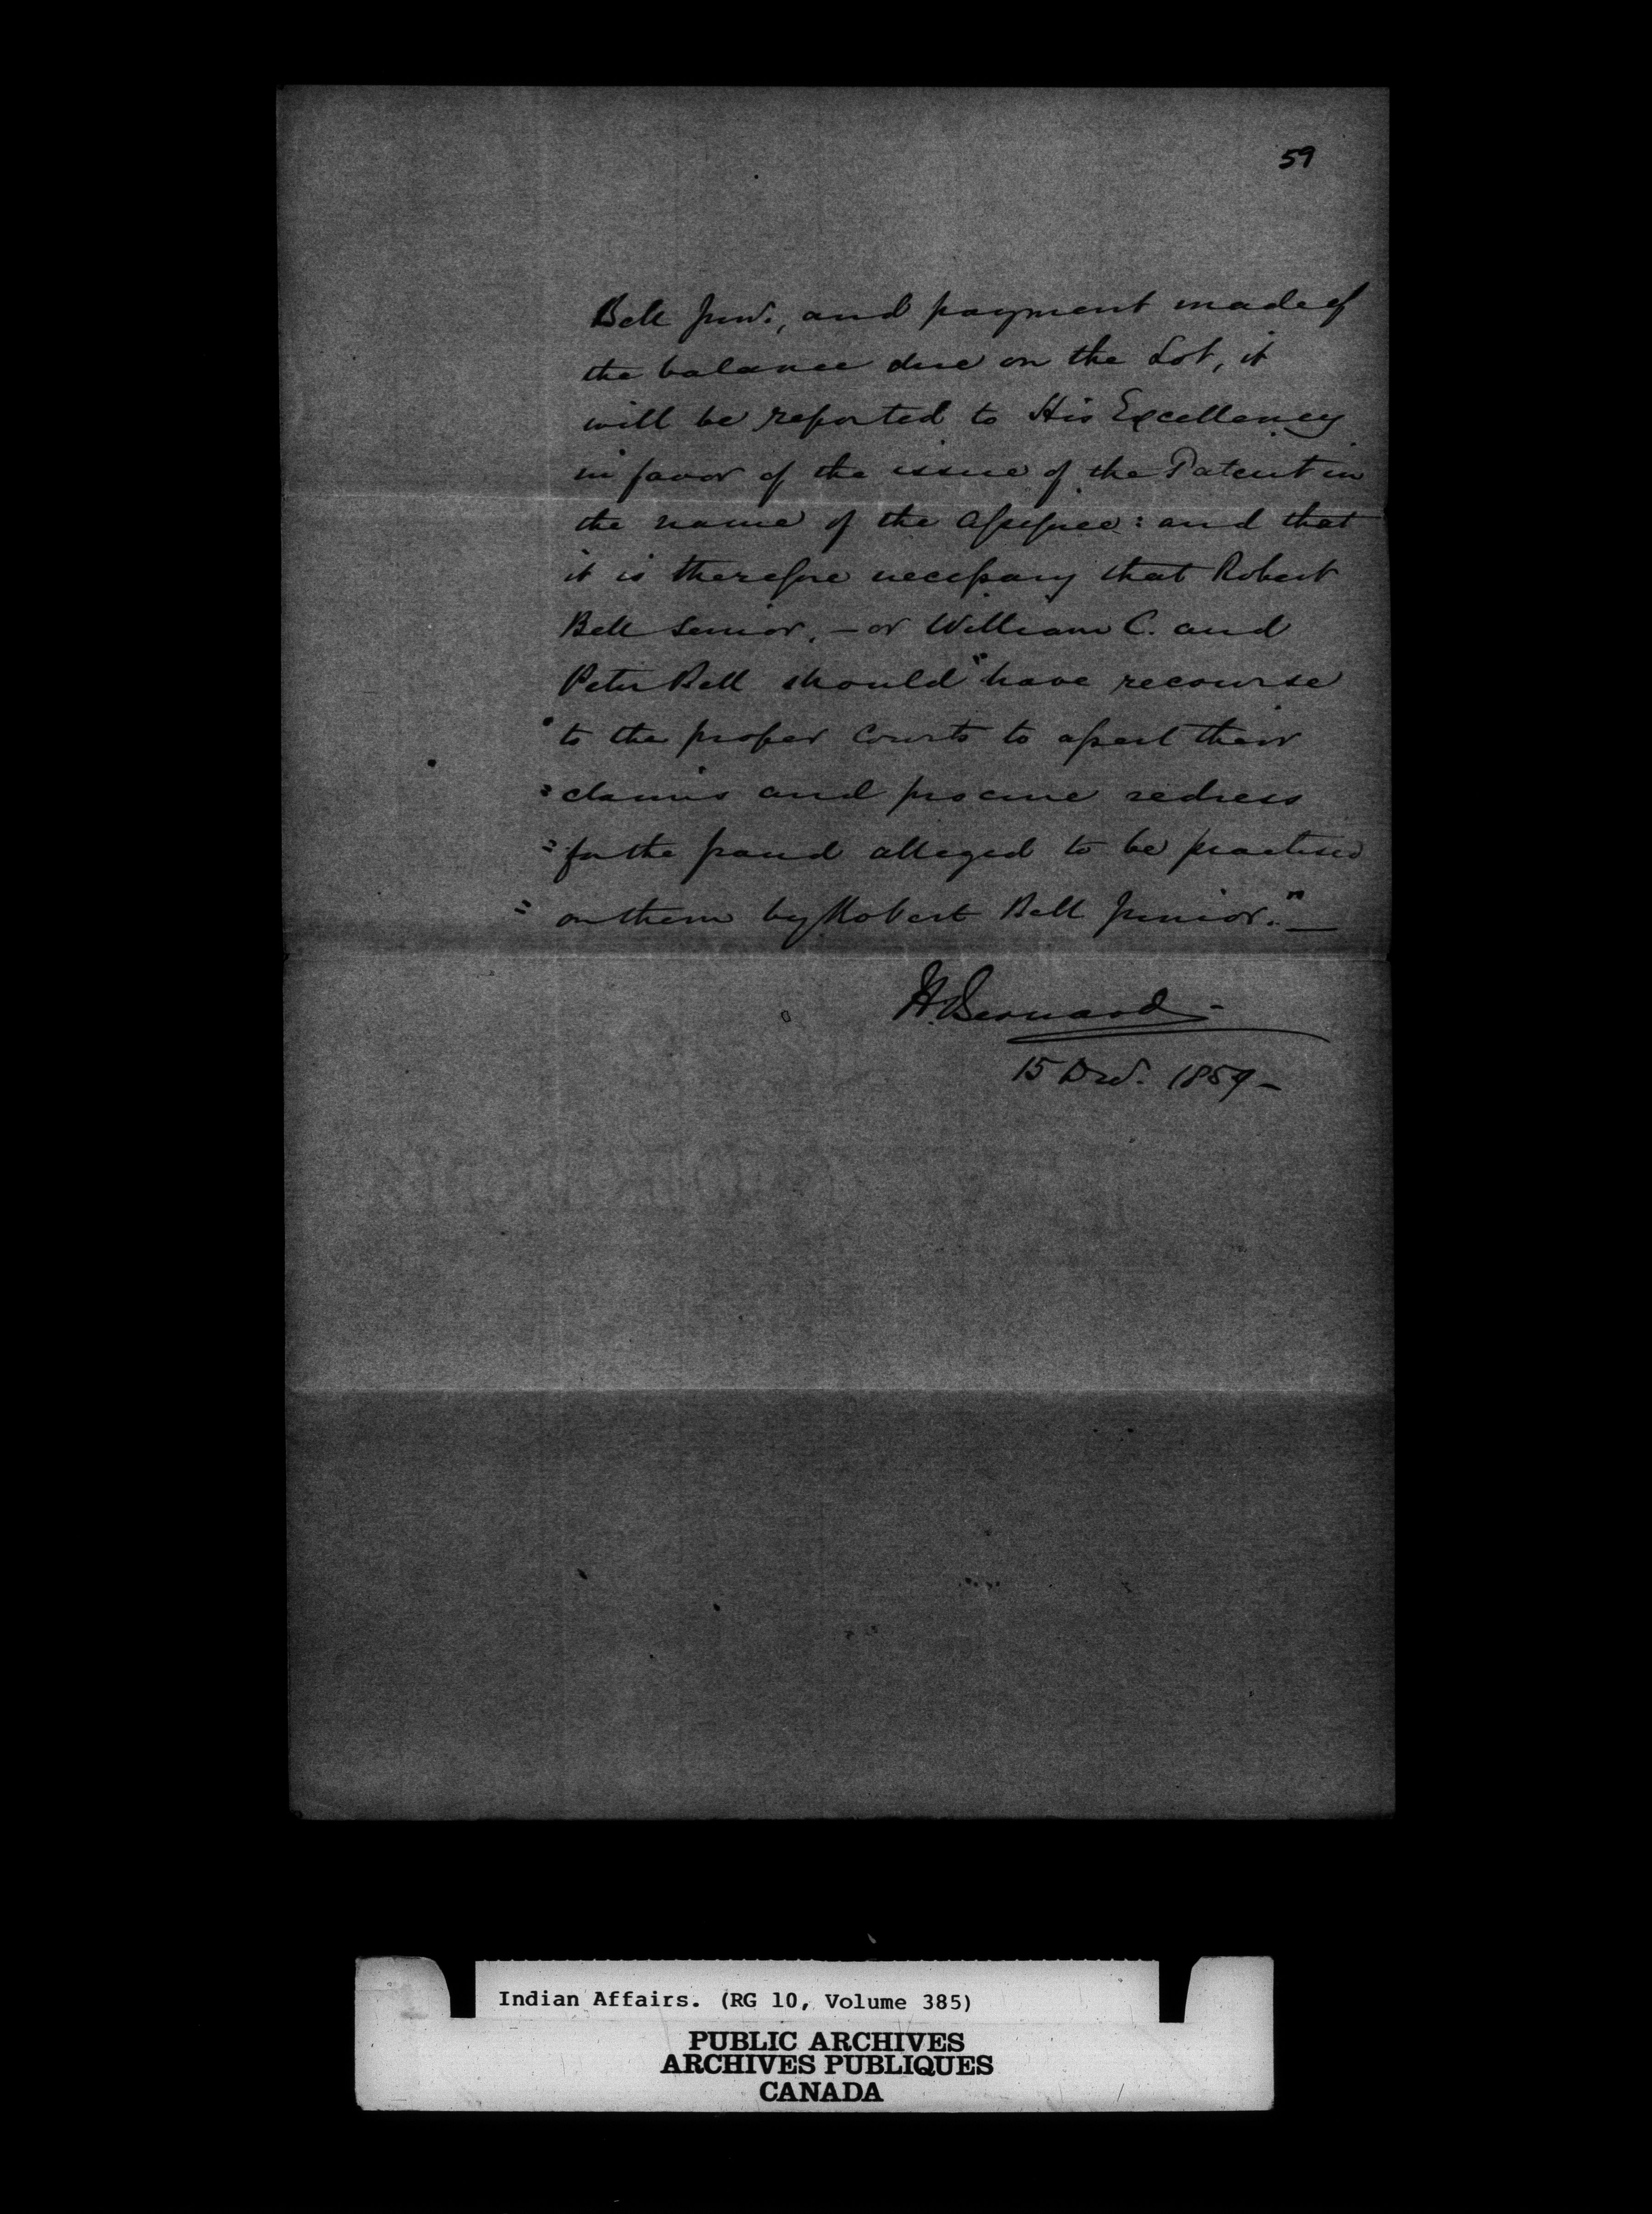 59
Bell Junr., and payment made of
the balance due on the Lot, it
will be reported to His Excellency
in favor of the issue of the Patent in
the name of the Assignee: and that
it is therefore necessary that Robert
Bell Senior, – or William C. and
Peter Bell should "have recourse
" to the proper Courts to assert their
" claims and procure redress
" for the fraud alleged to be practised
" on them by Robert Bell Junior." —
H. Bernard –
15 Decr. 1859 –
Indian Affairs. (RG 10, Volume 385)
PUBLIC ARCHIVES
ARCHIVES PUBLIQUES
CANADA